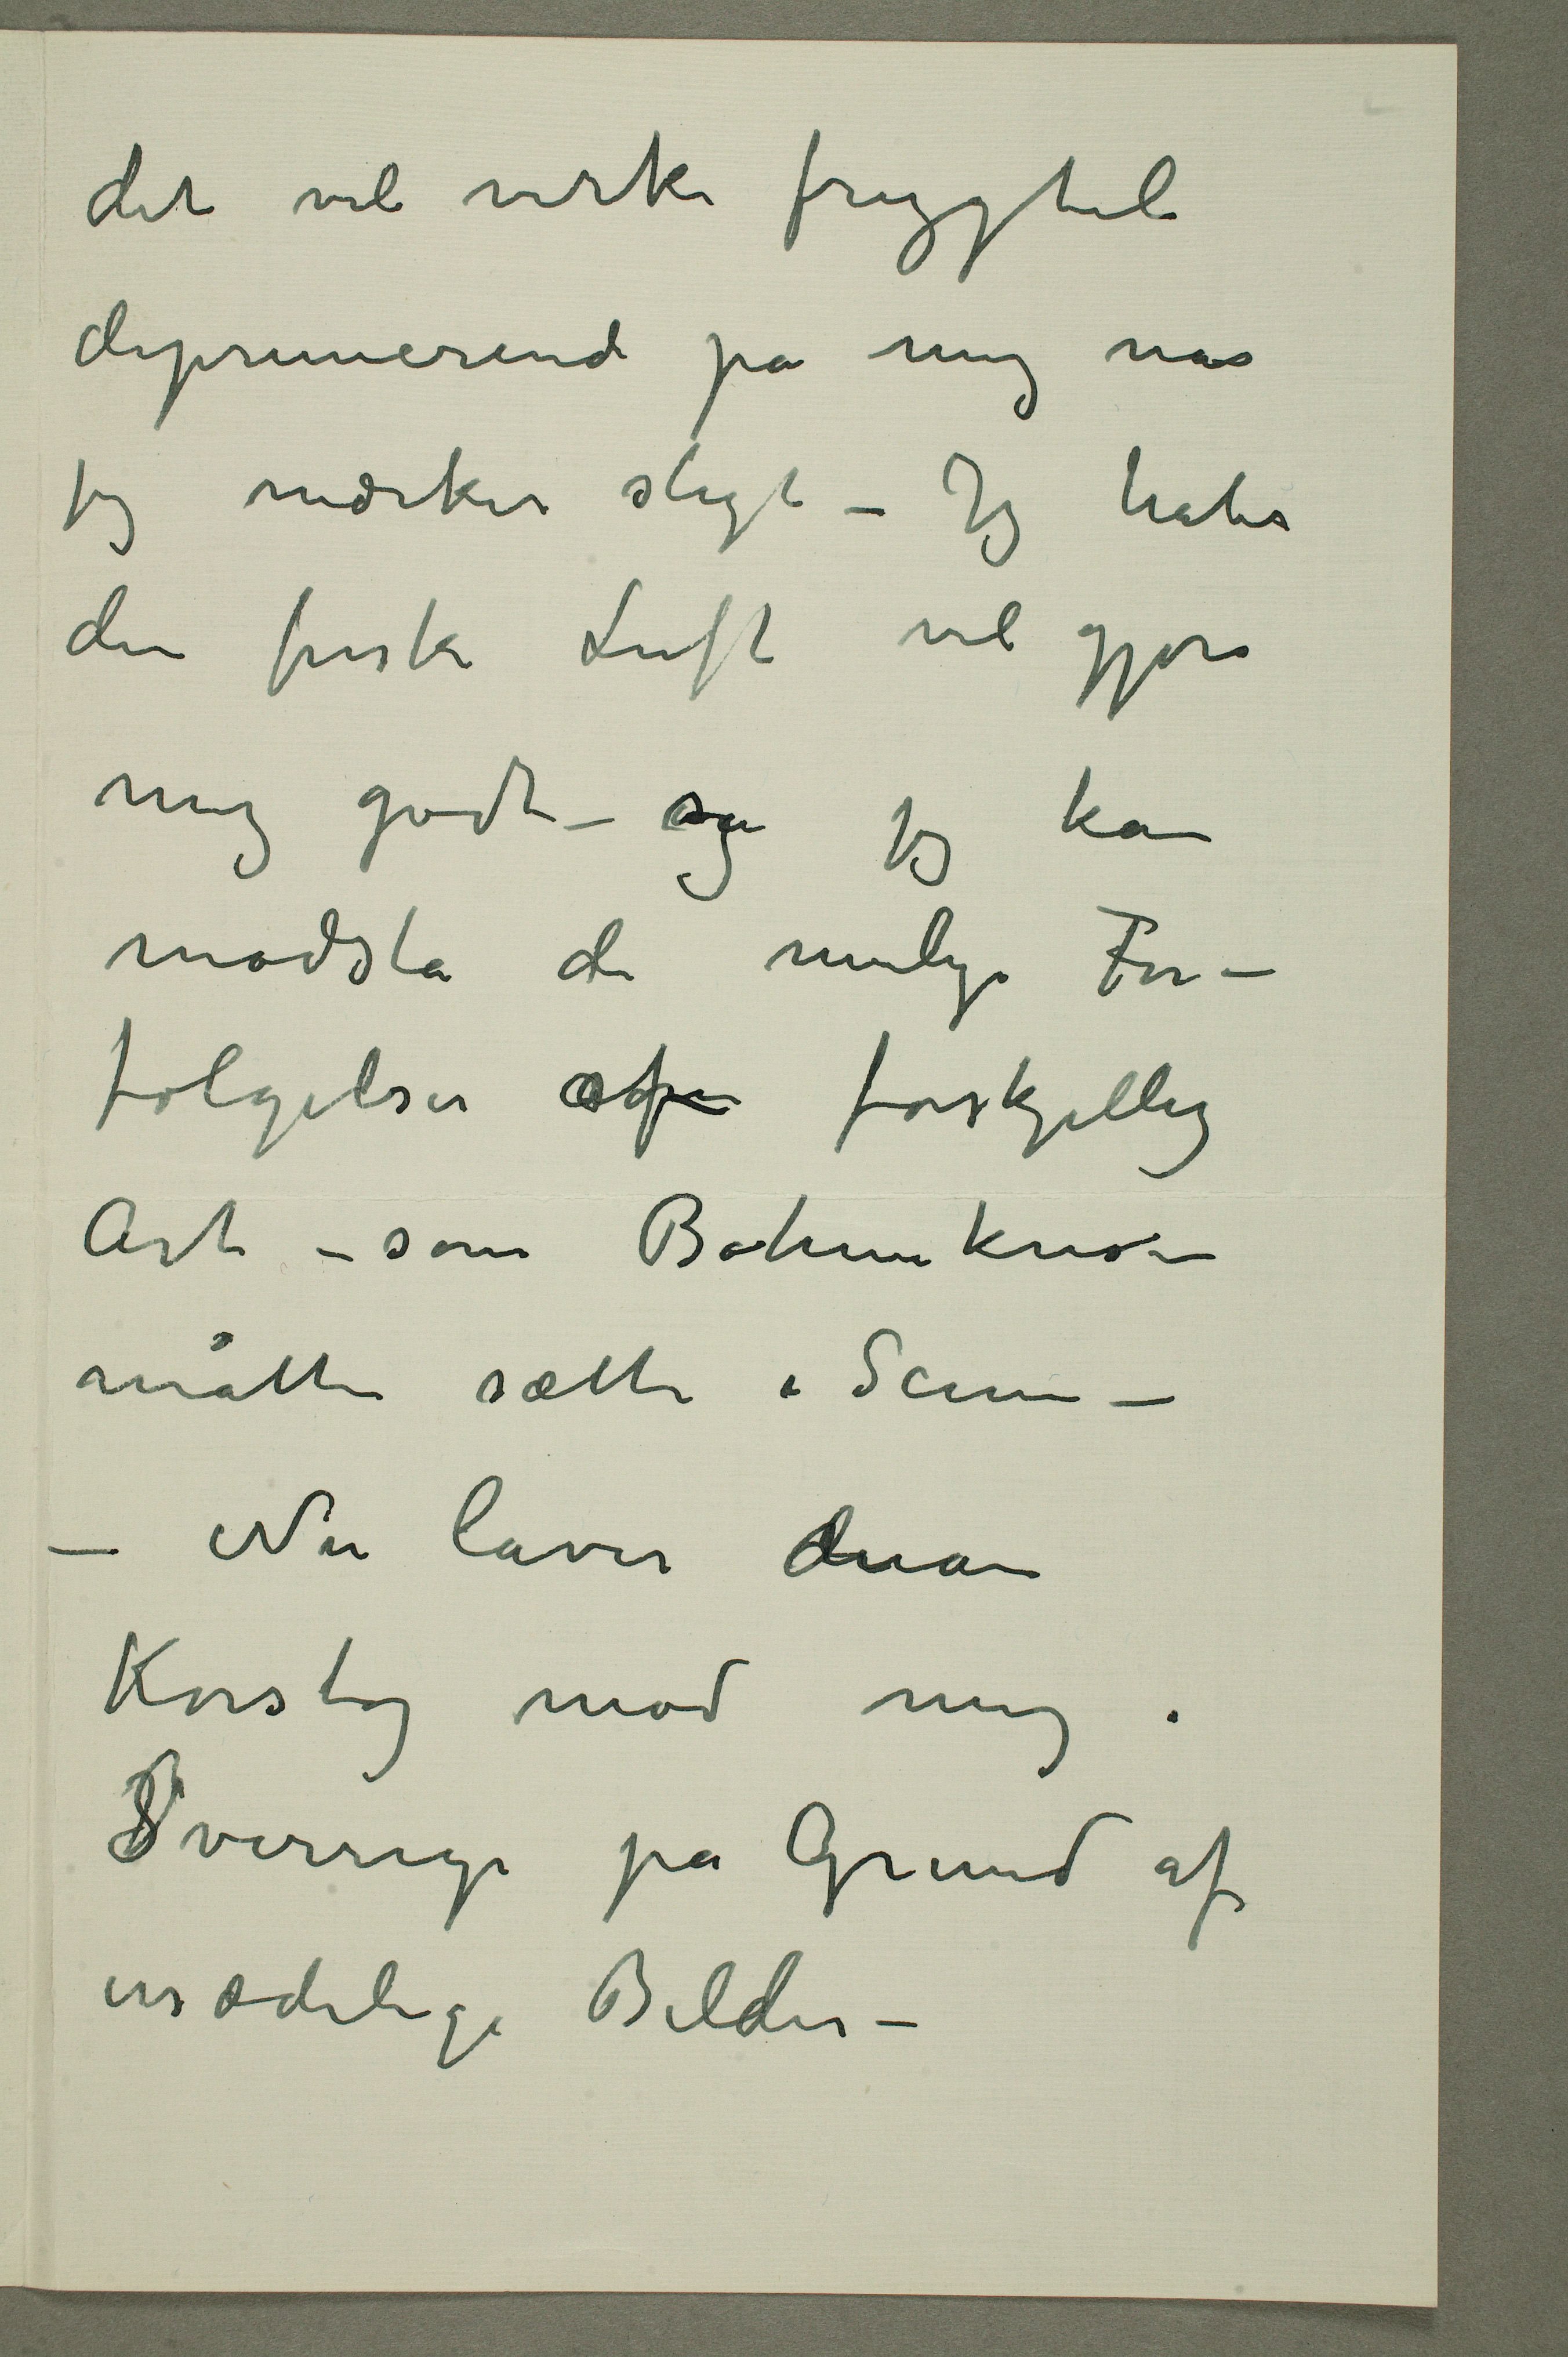 det vil virke frygteli
deprimerende på mig når
jeg mærker sligt – Jeg håber
den friske Luft vil gjøre
mig godt – så jeg kan
modstå de mulige For-
følgelser af forskjellig
Art – som Bohemekresen
måtte sætte i Scene –
– Nu laver man
Korstog mod mig i
Sverrige på Grund af
usædelige Billeder –